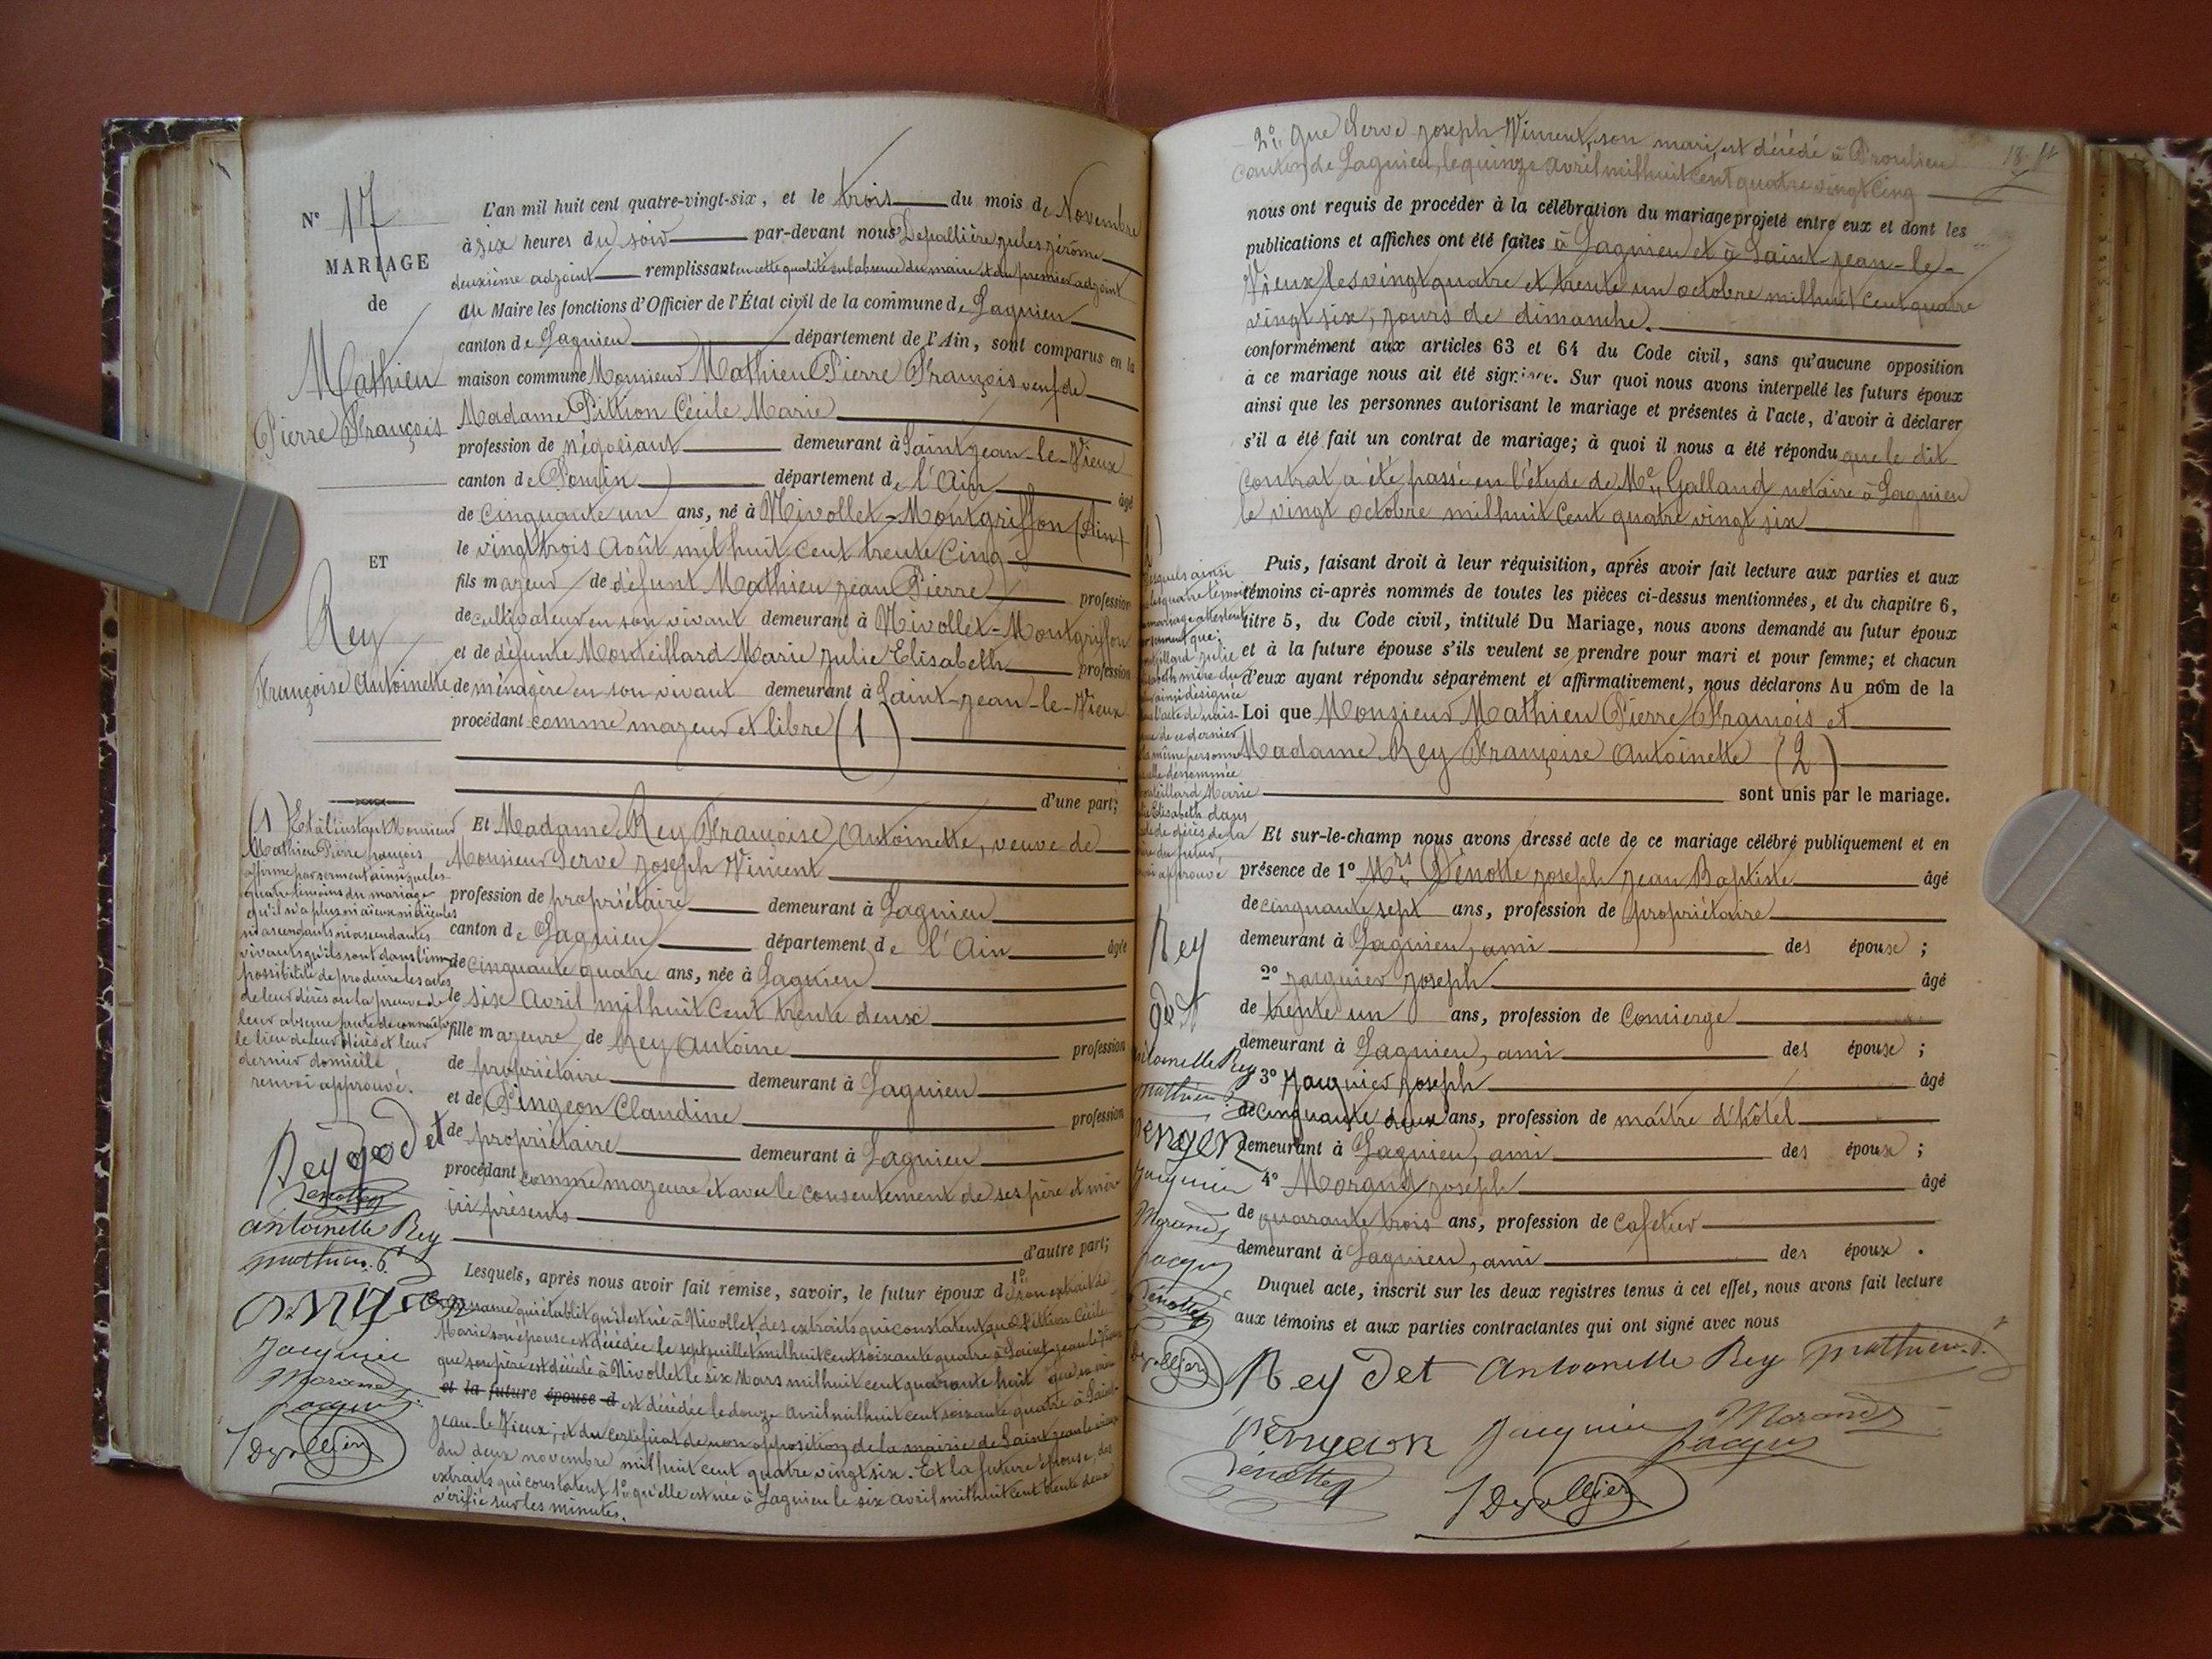 N° 17
MARIAGE
de
Mathieu
Pierre François
ET
Rey
Françoise Antoinette
L'an mil huit cent quatre-vingt-six, et le trois du mois de Novembre
à six heures du soir par-devant nous Depallière jules jérôme
deuxième adjoint remplissant en cette qualité en l'absence du maire et du premier adjoint
du Maire les fonctions d'Officier de l'État civil de la commune de Lagnieu
canton de Lagnieu département de l'Ain, sont comparus en la
maison commune Monsieur Mathieu Pierre François veuf de
Madame Pittion Cécile Marie
profession de négociant demeurant à Saint-jean-le-Vieux
canton de Poncin département de l'Ain âgé
de Cinquante un ans, né à Nivollet-Montgriffon (Ain)
le vingt trois Août mil huit cent trente Cinq
fils majeur de défunt Mathieu jean Pierre profession
de cultivateur en son vivant demeurant à Nivollet-Montgriffon
et de défunte Monteillard Marie julie Elisabeth profession
de ménagère en son vivant demeurant à Saint-jean-le-Vieux
procédant comme majeur et libre (1)
d'une part;
(1) Et à l'instant Monsieur
Mathieu Pierre françois
affirme par serment ainsi que les
quatre témoins du mariage
qu'il n'a plus ni aïeux ni aïeules
ni ascendants ni ascendantes
vivants qu'ils sont dans l'im-
possibilité de produire les actes
de leur décès ou la preuve de
leur absence faute de connaître
le lieu de leur décès et leur
dernier domicile
renvoi approuvé.
Rey godet
antoinette Rey
mathieu. P.
Jacquier
Morand
Jacquier
Et Madame Rey Françoise Antoinette, veuve de
Monsieur Serve joseph Vincent
profession de propriétaire demeurant à Lagnieu
canton de Lagnieu département de l'Ain âgée
de cinquante quatre ans, née à Lagnieu
le six Avril mil huit Cent trente deux
fille majeure de Rey Antoine profession
de propriétaire demeurant à Lagnieu
et de Pingeon Claudine profession
de propriétaire demeurant à Lagnieu
procédant comme majeure et avec le consentement de ses père et mère
ici présents
d'autre part;
Lesquels, après nous avoir fait remise, savoir, le futur époux d 1° son extrait de
naissance qui établit qu'il est né à Nivollet, des extraits qui constatent que Pittion Cécile
Marie son épouse est décédée le sept juillet mil huit cent soixante quatre à Saint jean le Vieux
que son père est décédé à Nivollet le six Mars mil huit cent quarante huit que sa mère
et la future épouse d est décédée le douze Avril mil huit cent soixante quatre à Saint
jean-le-Vieux; et du certificat de non opposition de la mairie de Saint jean le vieux
du deux novembre mil huit cent quatre vingt six. Et la future épouse, des
extraits qui constatent 1° qu'elle est née à Lagnieu le six avril mil huit cent trente deux
vérifié sur les minutes.
2° que Serve joseph Vincent, son mari, est décédé à Proulieu
canton de Lagnieu, le quinze avril mil huit Cent quatre vingt Cinq
nous ont requis de procéder à la célébration du mariage projeté entre eux et dont les
publications et affiches ont été faites à Lagnieu et à Saint-jean-le-
Vieux les vingt quatre et trente un octobre mil huit Cent quatre
vingt six, jours de dimanche.
conformément aux articles 63 et 64 du Code civil, sans qu'aucune opposition
à ce mariage nous ait été signifiée. Sur quoi nous avons interpellé les futurs époux
ainsi que les personnes autorisant le mariage et présentes à l'acte, d'avoir à déclarer
s'il a été fait un contrat de mariage; à quoi il nous a été répondu que le dit
Contrat a été passé en l'étude de Me Galland notaire à Lagnieu
le vingt octobre mil huit Cent quatre vingt six
Puis, faisant droit à leur réquisition, après avoir fait lecture aux parties et aux
témoins ci-après nommés de toutes les pièces ci-dessus mentionnées, et du chapitre 6,
titre 5, du Code civil, intitulé Du Mariage, nous avons demandé au futur époux
et à la future épouse s'ils veulent se prendre pour mari et pour femme; et chacun
d'eux ayant répondu séparément et affirmativement, nous déclarons Au nom de la
Loi que Monsieur Mathieu Pierre François et
Madame Rey Françoise Antoinette (2)
sont unis par le mariage.
Et sur-le-champ nous avons dressé acte de ce mariage célébré publiquement et en
présence de 1° Mrs Dénotte joseph jean Baptiste âgé
de cinquante sept ans, profession de propriétaire
demeurant à Lagnieu, ami des époux ;
2° jacquier joseph âgé
de trente un ans, profession de Concierge
demeurant à Lagnieu, ami des époux ;
3° Jacquier joseph âgé
de cinquante deux ans, profession de maître d'hôtel
demeurant à Lagnieu, ami des époux ;
4° Morand joseph âgé
de quarante trois ans, profession de Cafetier
demeurant à Lagnieu, ami des époux .
Duquel acte, inscrit sur les deux registres tenus à cet effet, nous avons fait lecture
aux témoins et aux parties contractantes qui ont signé avec nous
Rey Det Antoinette Rey mathieu. P.
Pingeon Jacquier Morand
Jacquier